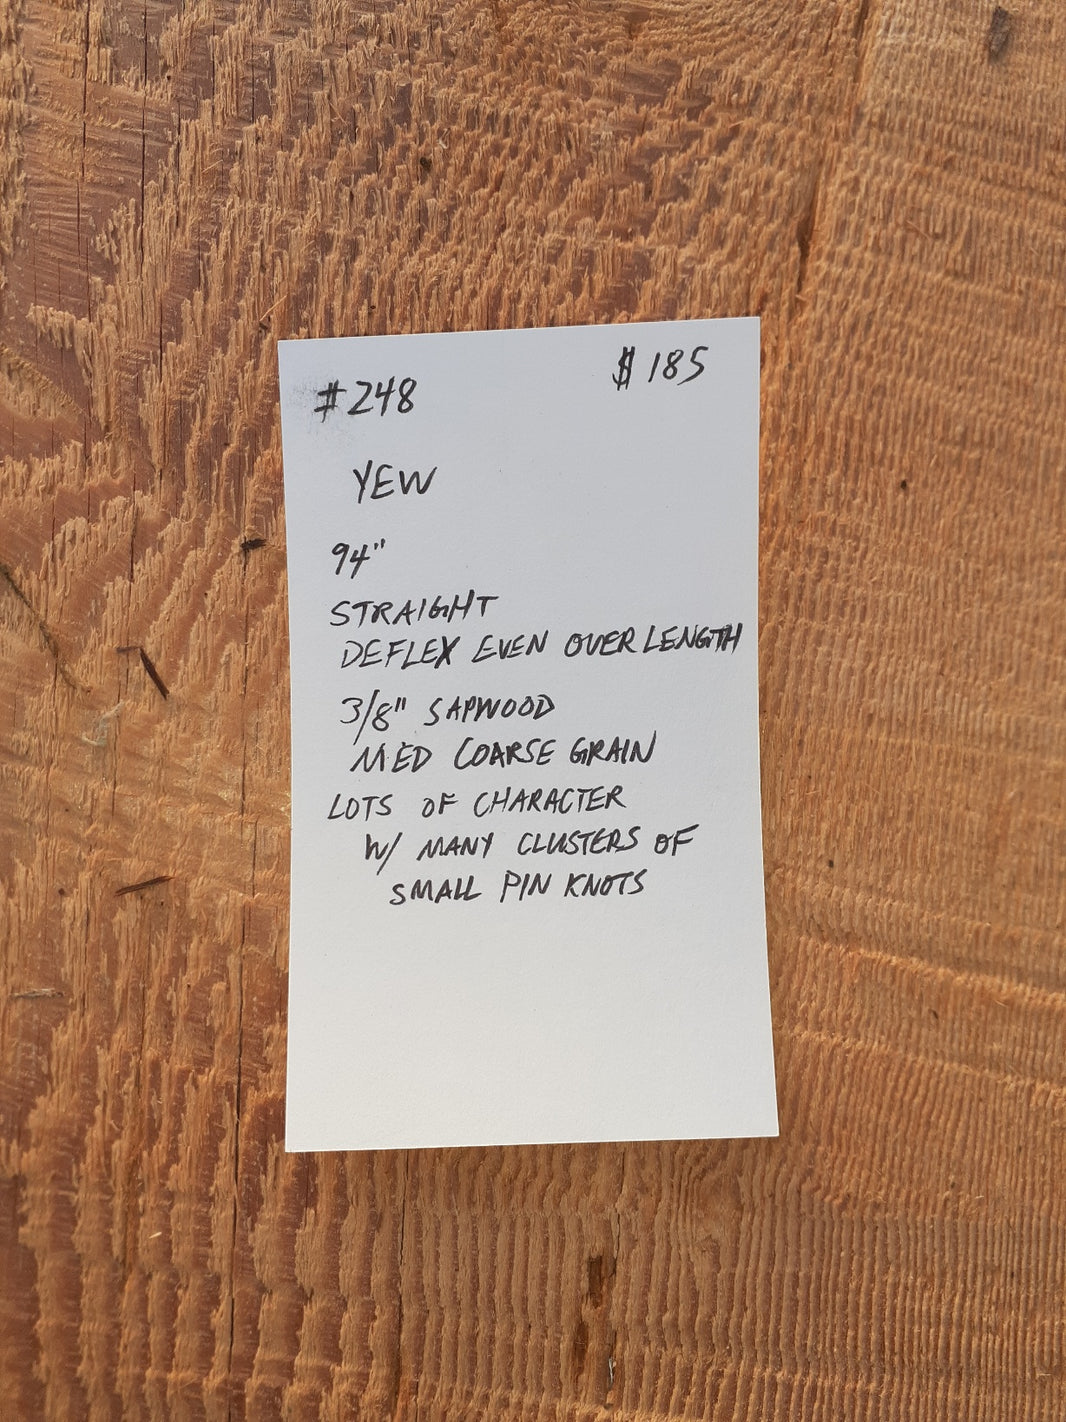 #248
$185
YEW
94"
STRAIGHT
DEFLEX EVEN OVER LENGTH
3/8" SAPWOOD
MED COARSE GRAIN
LOTS OF CHARACTER
W/ MANY CLUSTERS OF
SMALL PIN KNOTS